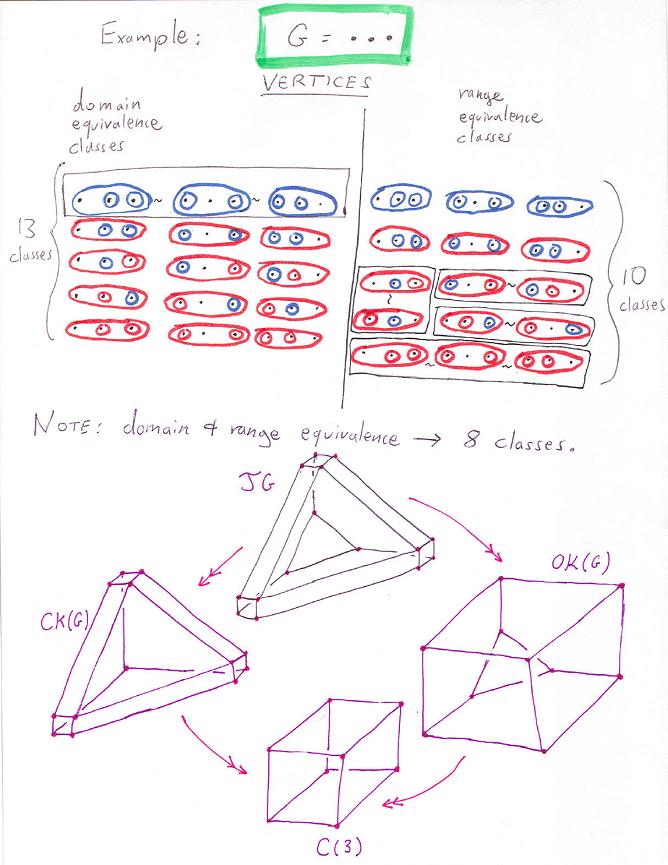 Example: G = •••
VERTICES
domain
equivalence
classes
range
equivalence
classes
~ ~
13
classes
~
~
~
~ ~
10
classes
NOTE: domain & range equivalence → 8 classes.
JG
CK(G)
OK(G)
C(3)